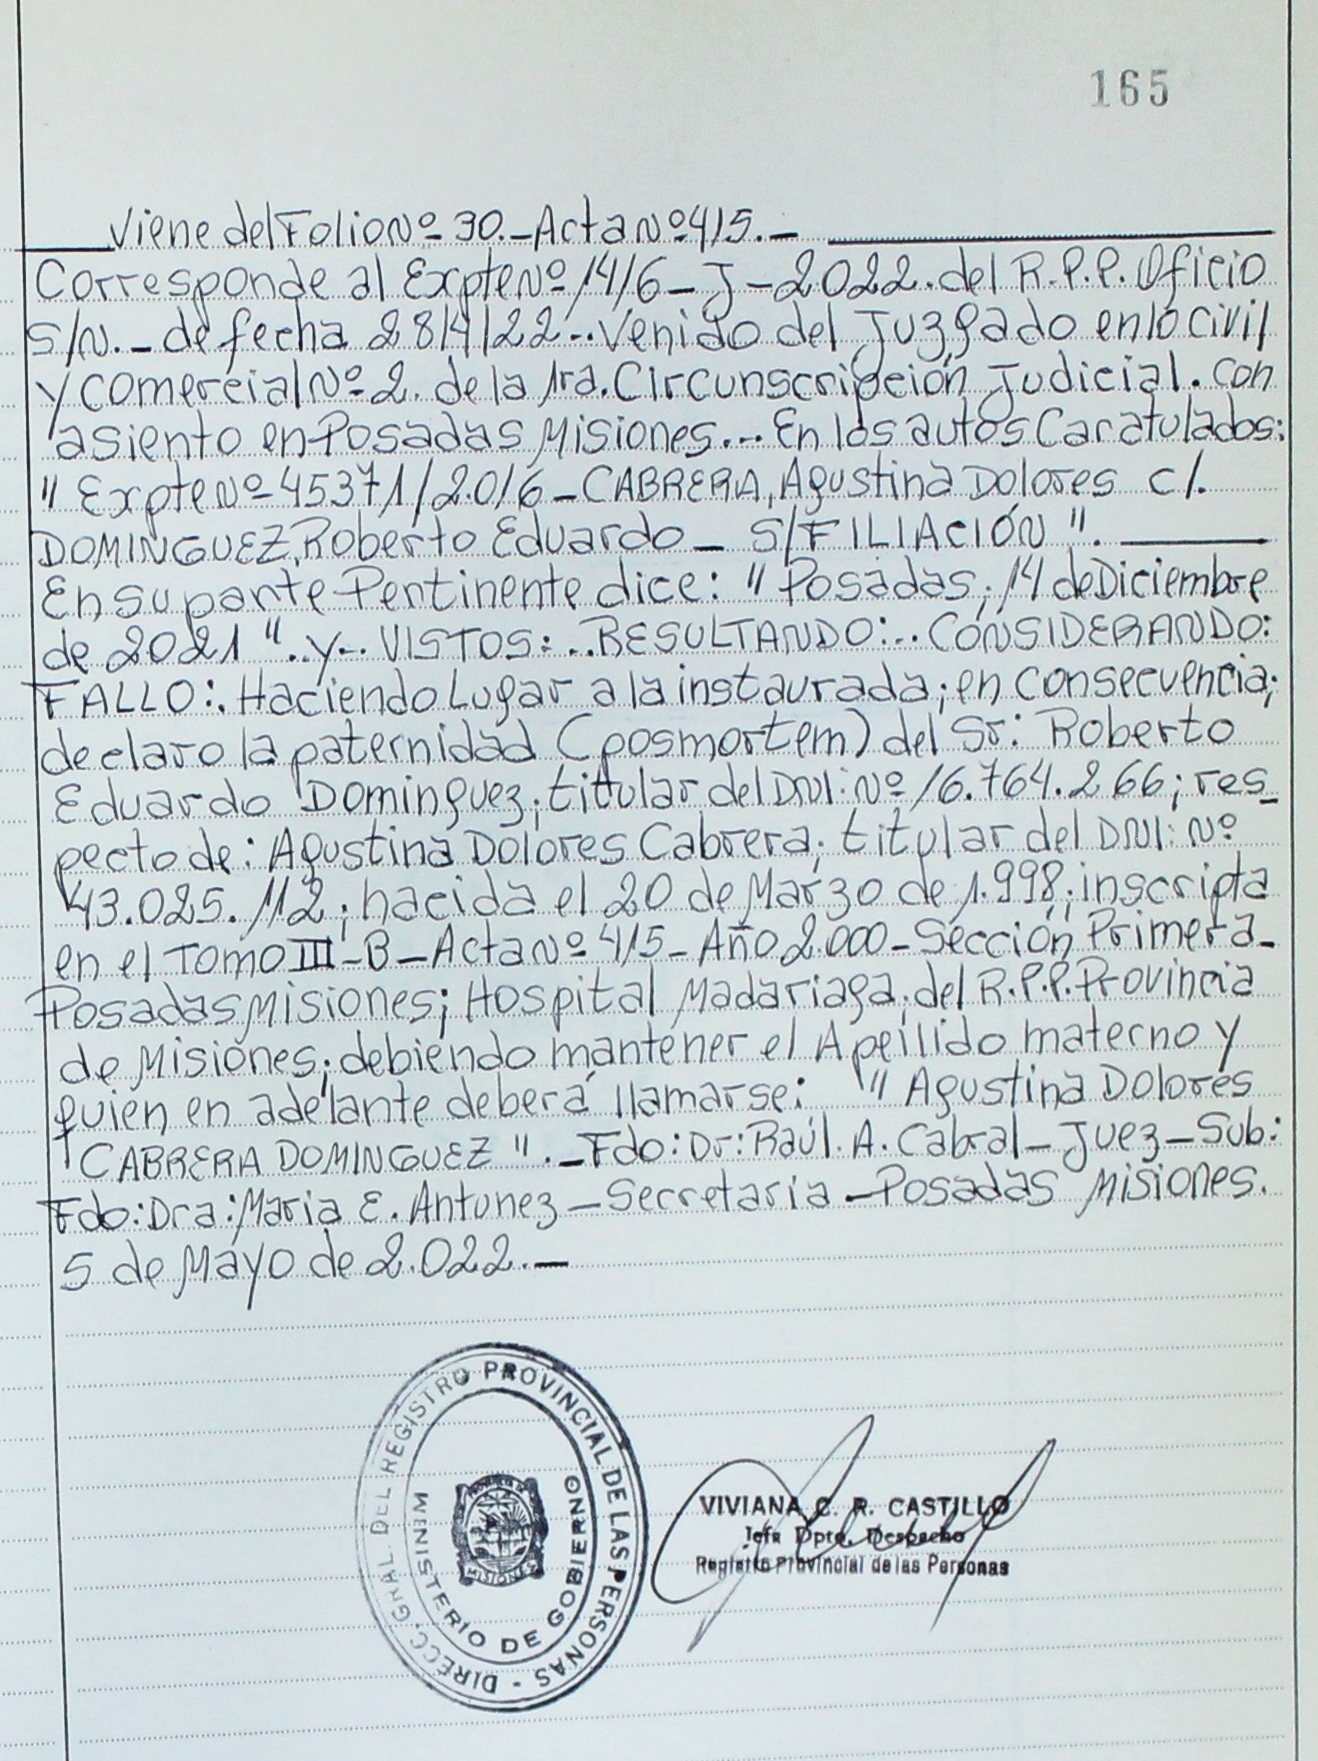 165
Viene del Folio Nº 30._Acta Nº 415._
Corresponde al Expte Nº 1416_J_2022. del R.P.P. Oficio
S/N._ de fecha 28/4/22... Venido del Juzgado en lo Civil
y Comercial Nº 2. de la 1ra. Circunscripción Judicial. Con
asiento en Posadas Misiones... En los autos Caratulados:
" Expte Nº 45371/2.016_CABRERA, Agustina Dolores c/.
DOMINGUEZ, Roberto Eduardo _ S/FILIACIÓN ".
En su parte Pertinente dice: " Posadas, 14 de Diciembre
de 2021 "..y... VISTOS:..RESULTANDO:..CONSIDERANDO:
FALLO:. Haciendo Lugar a la instaurada; en consecuencia;
declaro la paternidad (posmortem) del Sr: Roberto
Eduardo Dominguez; titular del DNI: Nº 16.764.266; res_
pecto de: Agustina Dolores Cabrera; titular del DNI: Nº
43.025.112; nacida el 20 de Marzo de 1.998; inscripta
en el Tomo III_B_Acta Nº 415_Año 2.000_Sección Primera_
Posadas Misiones; Hospital Madariaga. del R.P.P. Provincia
de Misiones; debiendo mantener el Apellido materno y
quien en adelante deberá llamarse: " Agustina Dolores
CABRERA DOMINGUEZ "._Fdo: Dr: Raúl. A. Cabral_Juez_Sub:
Fdo: Dra: Maria E. Antunez_Secretaria_Posadas Misiones.
5 de Mayo de 2.022._
DIRECC. GRAL. DEL REGISTRO PROVINCIAL DE LAS PERSONAS -
MINISTERIO DE GOBIERNO
MISIONES
VIVIANA C. R. CASTILLO
Jefa Dpto. Despacho
Registro Provincial de las Personas